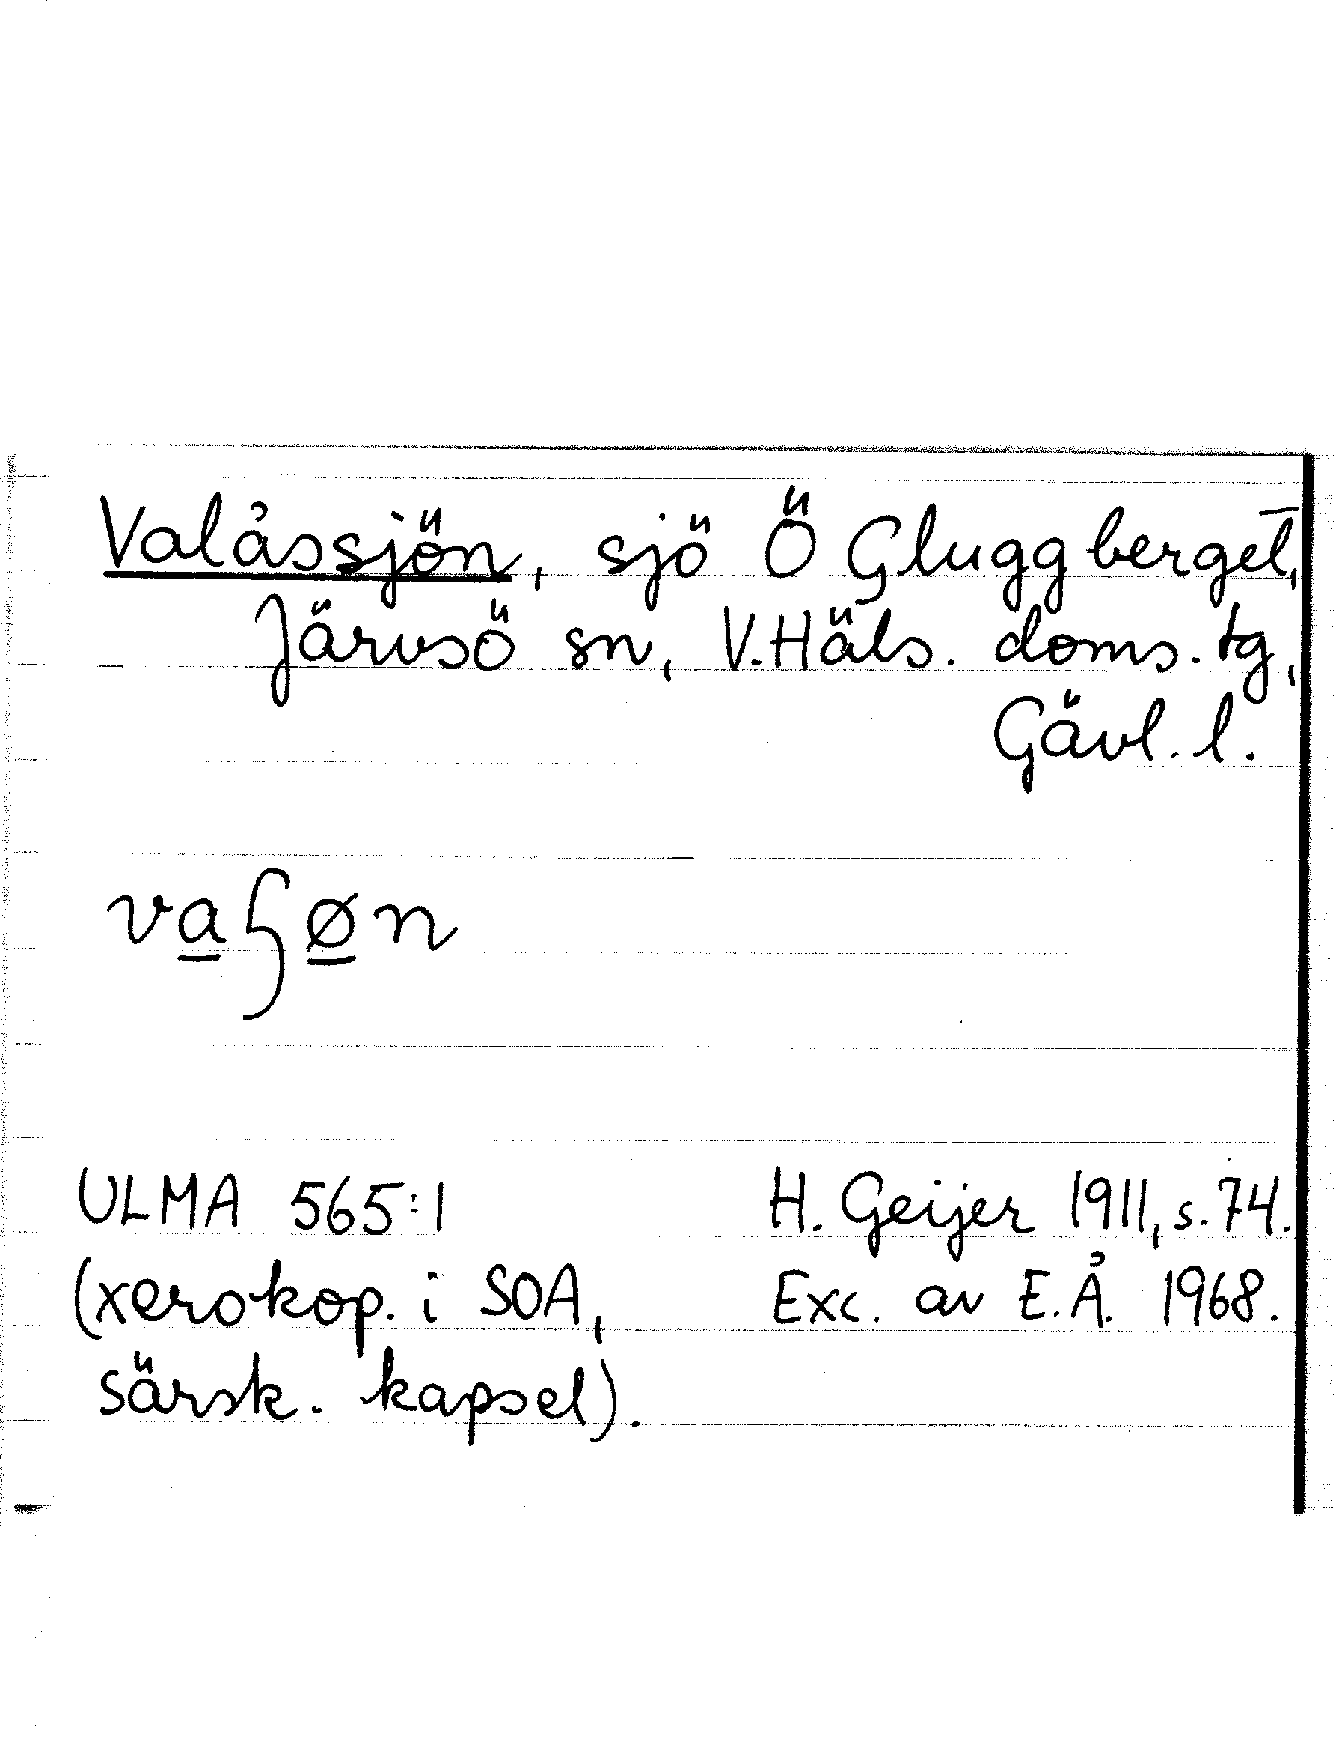 Valåssjön, sjö Ö Gluggberget,
Järvsö sn, V.Häls. doms. tg,
Gävl. l.
vaʃøn
ULMA 565:1 H. Geijer 1911, s. 74.
(xerokop. i SOA, Exc. av E.Å. 1968.
särsk. kapsel).